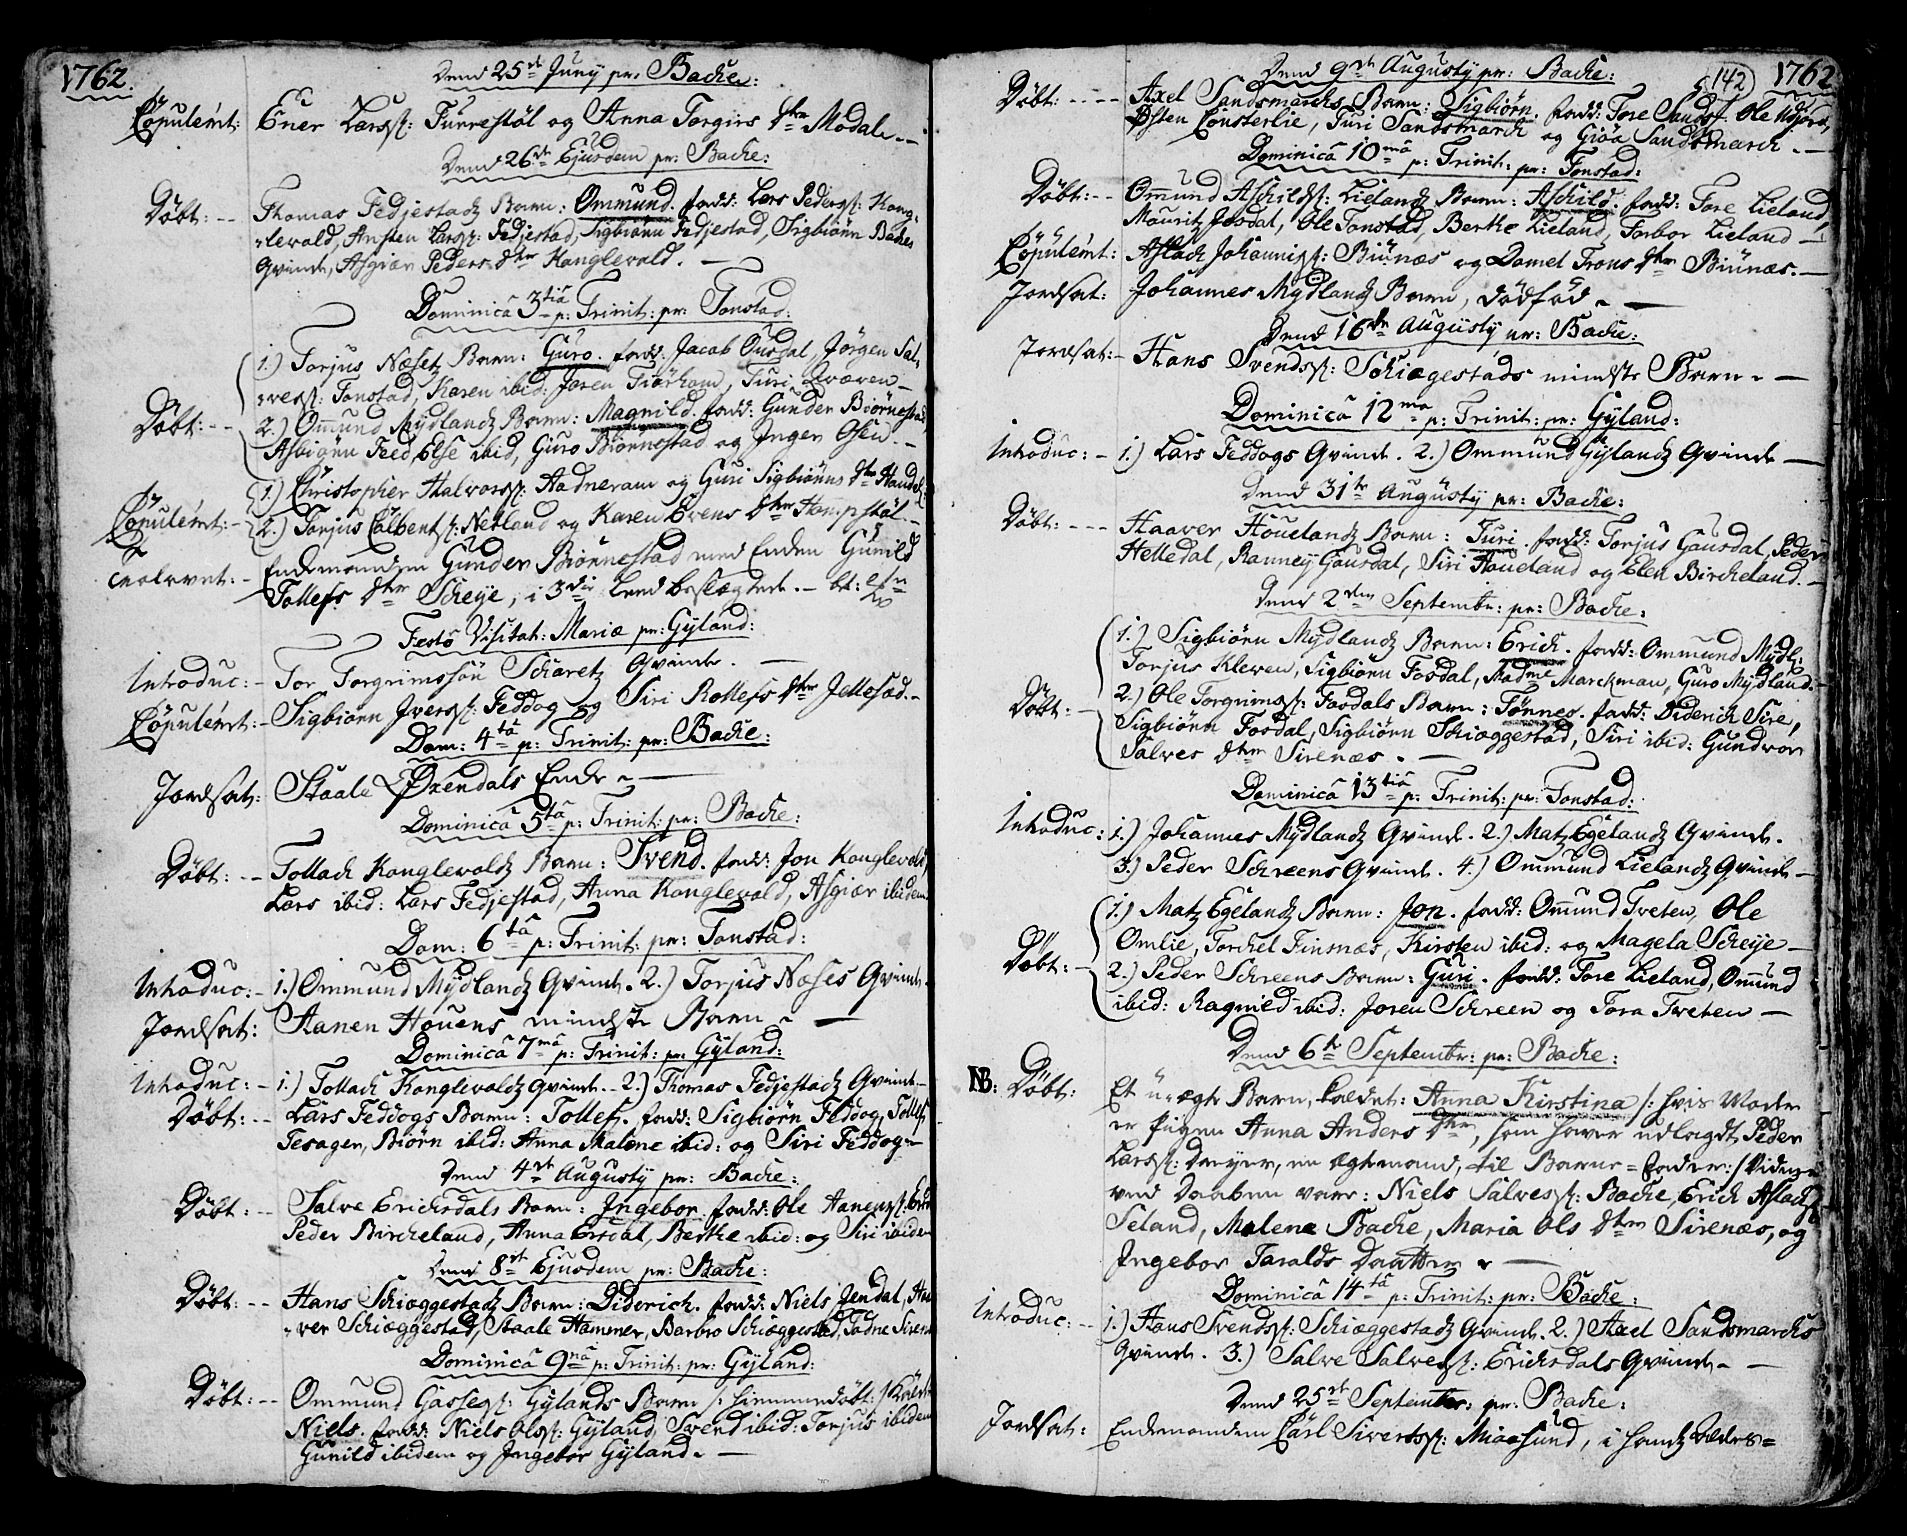 1762.
Dend 25de Juny pr: Backe:
Copulerit: Ener Larss: Furrestøl og Anna Torgirs dtr Modal.
Dend 26de Ejusdem pr: Backe:
Døbt: Thomas Fedjestadz Barn: Ommund. fadd: Lars Peders: Kong-
levald, Ansten Larss: Fedjestad, Sigbiørn Fedjestad, Sigbiørn Backes
Qvinde, Asgiær Peders dtr Konglevald.
Dominica 3tia p: Trinit: pr: Tonstad:
1.) Torjus Næsetz Barn: Guro. fadd: Jacob Ousdal, Jørgen Sal-
vess: Tonstad, Karen ibid: Joren Tiørhom, Turi Qvæven
Døbt: 2.) Ommund Mydlandz Barn: Magnild. fadd: Gunder Biørnestad
Asbiørn Feed, Else ibid, Guro Biørnestad og Inger Osen.
1.) Christopher Halvors: Aadneram og Guri Sigbiørns dtr Handel:
Copulerit: 2.) Torjus Colbents: Netland og Karen Evens dtr Hompstøl.
Enkemanden Gunder Biørnestad med Enken Gunild
Tollefs dtr Scheye, i 3die Leed beslægtede.
Festo Visitat: Mariæ pr: Gyland:
Introduc: Tor Torgrimssøn Schøretz Qvinde.
Copulerit: Sigbiørn Iverss: Feddog og Siri Rollefs dtr Jellesad.
Dom: 4ta p: Trinit: pr: Backe:
Jordsat: Staale Øxendals Enke
Dominica 5ta p: Trinit: pr: Backe:
Døbt: Tollach Konglevaldz Barn: Svend. fadd: Jon Konglevald,
Lars ibid: Lars Fedjestad, Anna Konglevald, Asgiær ibidem.
Dom: 6ta p: Trinit: pr: Tonstad:
Introduc: 1.) Ommund Mydlandz Qvinde. 2.) Torjus Næses Qvinde.
Jordsat: Aanen Houens mindste Barn
Dominica 7ma p: Trinit: pr: Gyland:
Introduc: 1.) Tollach Konglevaldz Qvinde. 2.) Thomas Fedjestadz Qvinde
Døbt: Lars Feddogs Barn: Tollef. fadd: Sigbiørn Feddog, Tollef
Tesager, Biørn ibid: Anna Malene ibid: og Siri Feddog
Dend 4de Augusty pr: Backe:
Døbt: Salve Ericksdals Barn: Ingebor. fadd: Ole Aanens:
Peder Bircheland, Anna Ersdal, Berthe ibid: og Siri ibidem
Dend 8de Ejusdem pr: Backe:
Døbt: Hans Schiæggestadz Barn: Diderich. fadd: Niels Jendal, Haa-
ver Schiæggestad, Staale Hammer, Barbro Schiæggestad, Tadne Sirenæs
Dominica 9na p: Trinit: pr: Gyland:
Døbt: Ommund Gasses: Gylands Barn /: hiemmedøbt :/ kaldet
Niels. fadd: Niels Olss: Gyland, Svend ibid: Torjus ibidem
Gunild ibidem og Ingebor Gyland.
142 1762
Dend 9de Augusty pr: Backe:
Døbt: Axel Sandsmarchs Barn: Sigbiørn. fadd: Tore Sandsm. Ole
Østen Consterlie, Turi Sandsmarch og Giøa Sandsmarch.
Dominica 10ma p: Trinit: pr: Tonstad:
Døbt: Ommund Aschilds: Lielandz Barn: Aschild. fadd: Tore Lieland,
Mauritz Josdal, Ole Tonstad, Berthe Lieland, Torbor Lieland
Copulerit: Aslach Johanniss: Biunæs og Domel Trons dtr Biunæs.
Jordsat: Johannes Mydlandz Barn, dødfød.
Dend 16de Augusty pr: Backe:
Jordsat: Hans Svendss: Schiægestads mindste Barn.
Dominica 12ma p: Trinit: pr: Gyland:
Introduc: 1.) Lars Feddogs Qvinde. 2.) Ommund Gylandz Qvinde
Dend 31te Augusty pr: Backe:
Døbt: Haaver Houelandz Barn: Turi. fadd: Torjus Gausdal, Peder
Helledal, Ranney Gausdal, Siri Houeland og Elen Bircheland.
Dend 2den Septembr: pr: Backe:
1.) Sigbiørn Mydlandz Barn: Erich. fadd: Ommund Mydl:
Torjus Kleven, Sigbiørn Fosdal, Madme Marckman, Guro Mydland.
Døbt: 2.) Ole Torgrims: Fosdals Barn: Tønnes. fadd: Diderich Sire,
Sigbiørn Fosdal, Sigbiørn Schiæggestad, Siri ibid: Gundvor
Salves dtr Sirenæs.
Dominica 13tia p: Trinit: pr: Tonstad:
Introduc: 1.) Johannes Mydlandz Qvinde. 2.) Matz Egelandz Qvinde.
3.) Peder Schreens Qvinde. 4.) Ommund Lielandz Qvinde
1.) Matz Egelandz Barn: Jon. fadd: Omund Treten, Ole
Omlie, Torchel Finsnæs, Kirsten ibid: og Magela Scheye
Døbt: 2.) Peder Schreens Barn: Guri. fadd: Tore Lieland, Omund
ibid: Ragnild ibid: Joren Schreen og Tora Treten
Dend 6te Septembr: pr: Backe:
NB: Døbt: Et u-ægte Barn, kaldet: Anna Kirstina /: hvis Moder
er pigen Anna Anders dtr, som haver udlagdt Peder
Larss: Dreyer, en ægtemand, til Barne-fader :/ Vidne
ved Daaben vare: Niels Salvess: Backe, Erich Aslachs:
Seland, Malene Backe, Maria Ols dtr Sirenæs, og
Ingebor Taralds Daatter
Dominica 14ta p: Trinit: pr: Backe:
Introduc: 1.) Hans Svendss: Schiæggestadz Qvinde. 2.) Axel Sandsmarchs
Qvinde. 3.) Salve Salvess: Ericksdals Qvinde
Dend 25de September: pr: Backe:
Jordsat: Enkemanden Carl Sivertss: Miaasund, i hands Alders-